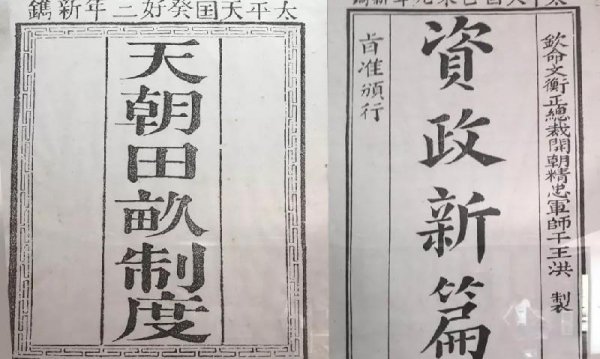 太平天囯癸好二年新鐫
天朝田畝制度
欽命文衡正總裁開朝精忠軍師干王洪 製
資政新篇
旨准頒行